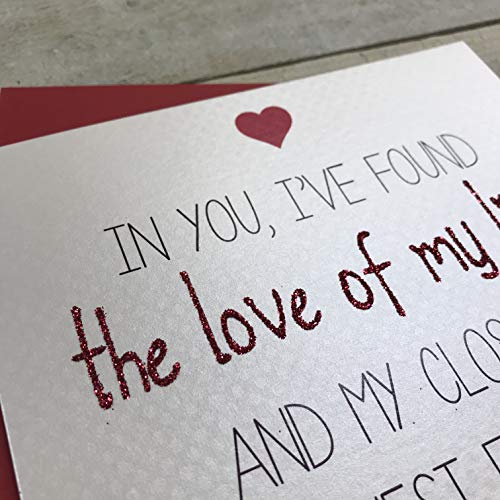 IN YOU, I'VE FOUND
the love of my
AND MY CLOS